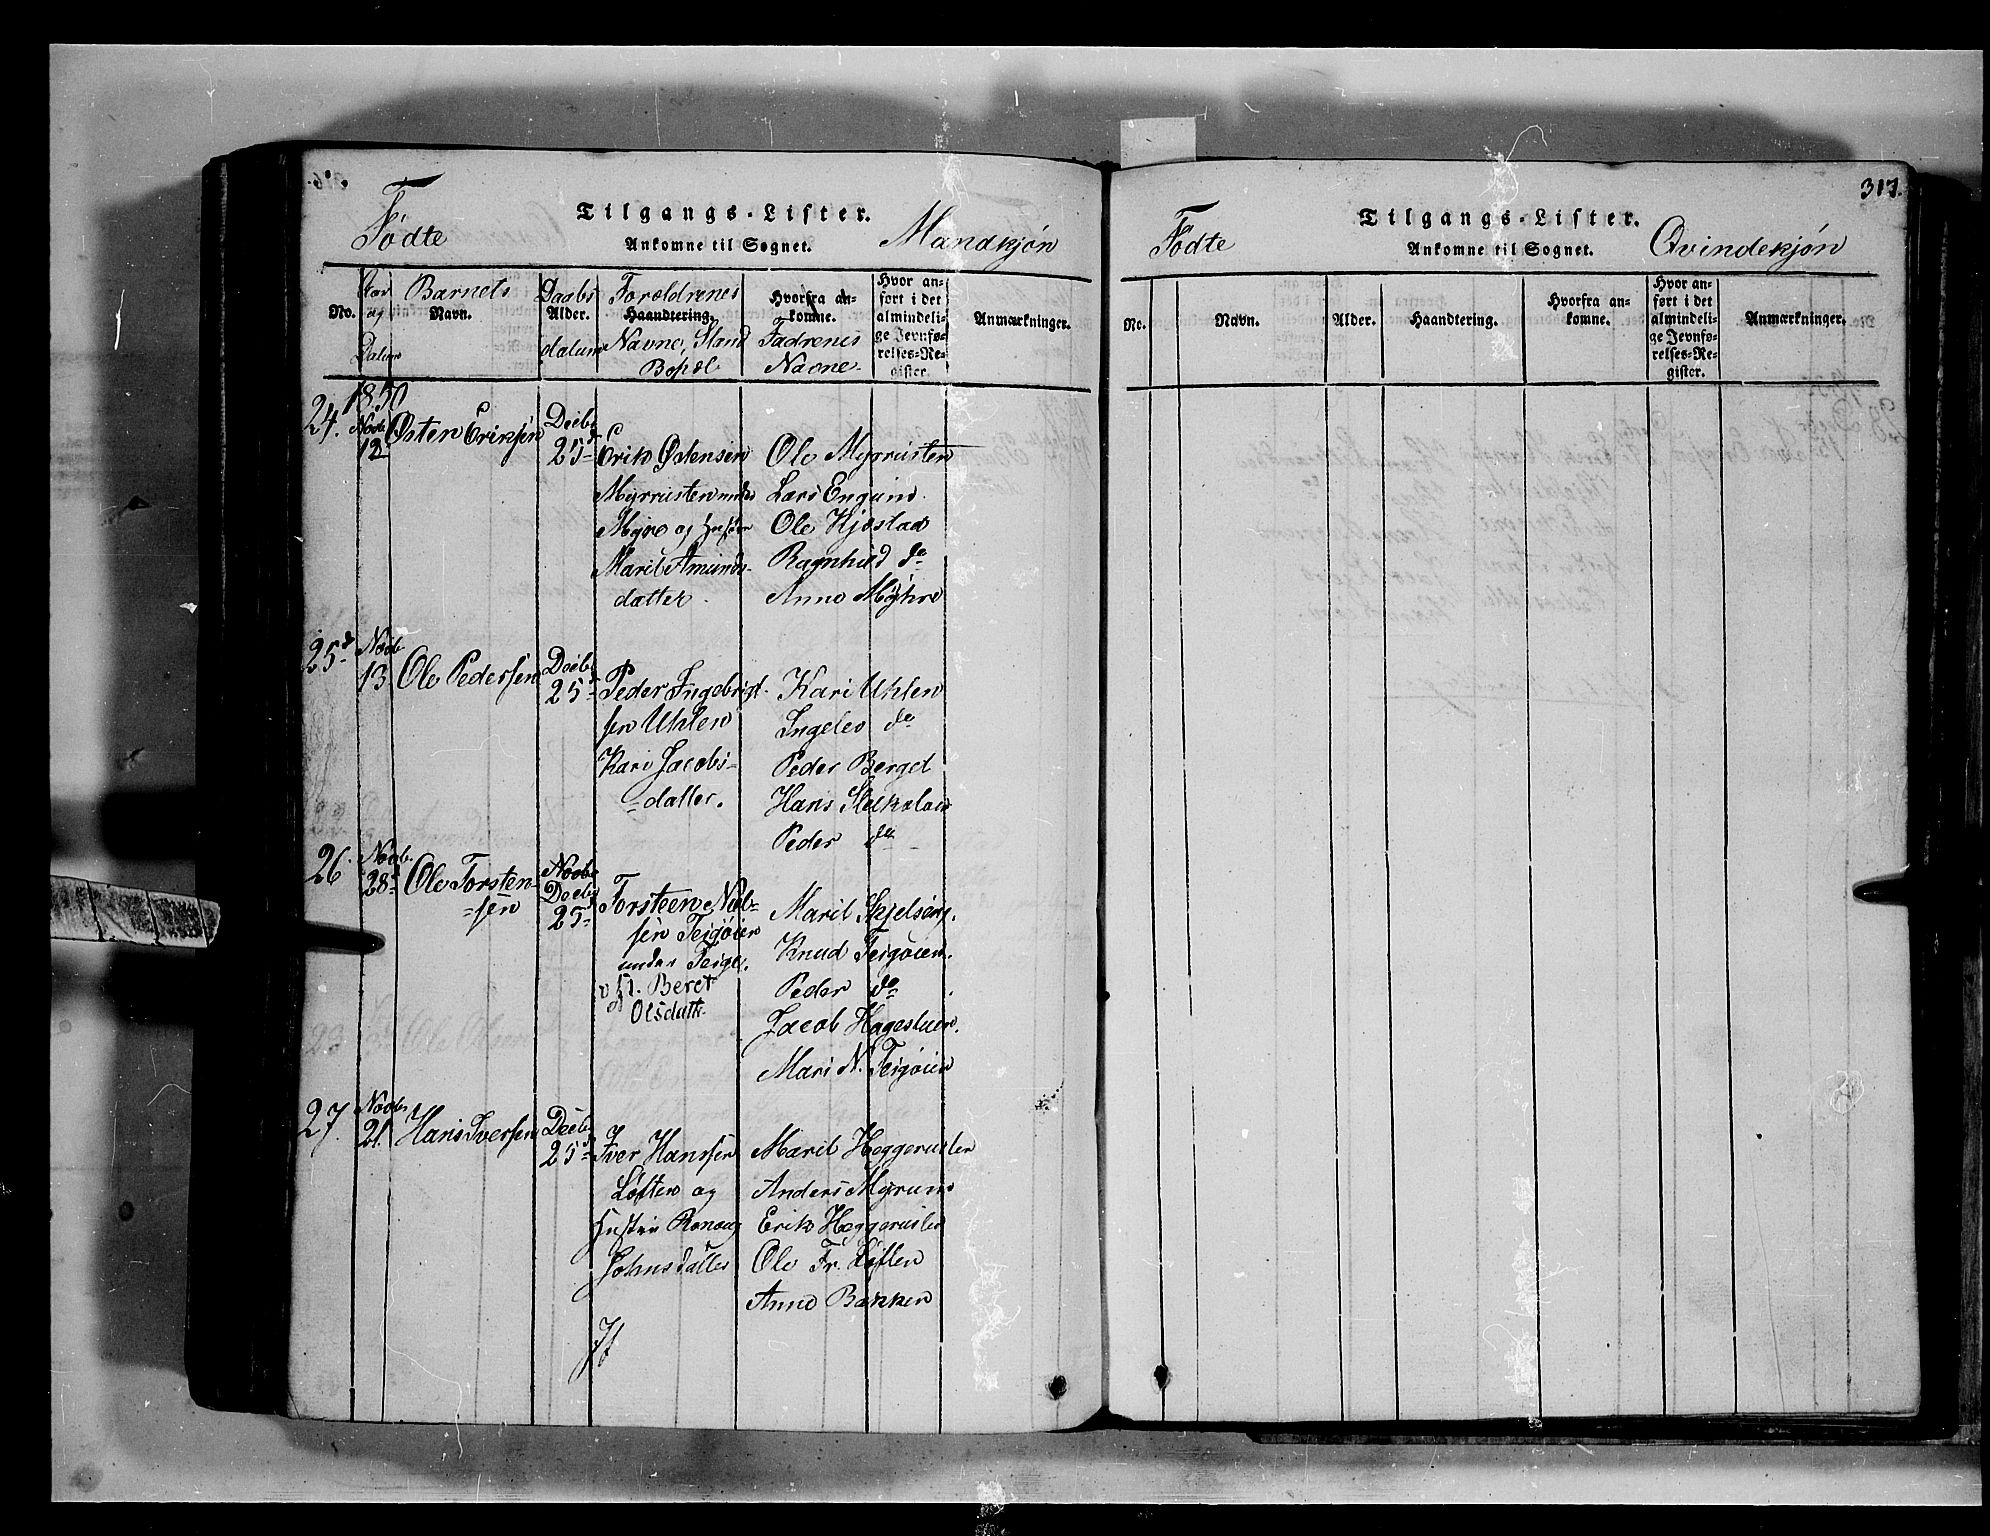 Fødte
Tilgangs-Lister.
Ankomne til Sognet.
Mandkjøn
No.
Aar og Datum
Barnets
Navn.
Daabs
Alder.
datum
Forældrenes
Haandtering.
Navne, Stand
Bopæl
Hvorfra an-
komne.
Fadrenes
Navne
Hvor an-
ført i det
almindeli-
ge Jevnfø-
relses-Re-
gister.
Anmærkninger.
1850
24. Novb. 12 Østen Eriksen Decbr 25d
Erik Østensen
Myrrusten under
Myre og Hustru
Marit Amunds-
datter.
Ole Myrrusten
Lars Englund
Ole Kjøstad
Ragnhild do
Anne Myhre
25d Novb. 13 Ole Pedersen Decbr 25d
Peder Ingebrigt-
sen Uhlen
Kari Jacobs-
datter.
Kari Uhlen
Ingelev do
Peder Berget
Hans
Peder do
26. Novb. 28d Ole Torsten-
sen
Novbr
Decbr
25d
Torsteen
sen Teigøien
under Teige.
Beret
Olsdatt.
Marit
Knud Teigøien.
Peder do
Jacob Hagesluen.
Mari N. Teigøien
27. Novbr 21. Hans Iversen Decbr 25d
Iver Hanssen
Løften og
Hustru Ronaug
Johnsdatter
Marit Heggerusten
Anders Myrum
Erik Heggerusten
Ole Fr. Løften
Anne Bakken
317.
Fødte
Tilgangs-Lister.
Ankomne til Sognet.
Qvindekjøn
No.
Navn.
Alder.
Haandtering.
Hvorfra an-
komne.
Hvor an-
ført i det
almindeli-
ge Jevnfø-
relses-Re-
gister.
Anmærkninger.